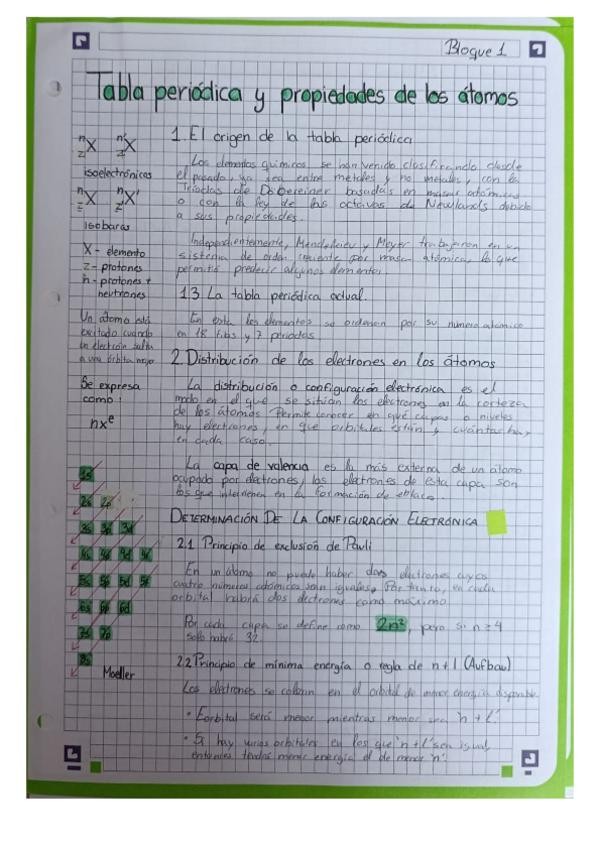 Bloque 1
Tabla periódica y propiedades de los átomos
n X n' X
z z
isoelectrónicas
n X n X'
z z'
isobaras
X - elemento
z - protones
n - protones +
neutrones
Un átomo está
excitado cuando
un electrón salta
a una órbita
Se expresa
como:
nxᵉ
1s
2s 2p
3s 3p 3d
4s 4p 4d 4f
5s 5p 5d 5f
6s 6p 6d
7s 7p
8s
Moeller
1. El origen de la tabla periódica
Los elementos químicos se han venido clasificando desde
el pasado, ya sea entre metales y no metales, con las
Triadas de Döbereiner basadas en masas atómicas
o con la ley de las octavas de Newlands debido
a sus propiedades.
Independientemente, Mendeleiev y Meyer trabajaron en un
sistema de orden creciente por masa atómica, lo que
permitió predecir algunos elementos.
1.3 La tabla periódica actual.
En esta los elementos se ordenan por su número atómico
en 18 filas y 7 periodos
2. Distribución de los electrones en los átomos
La distribución o configuración electrónica es el
modo en el que se sitúan los electrones en la corteza
de los átomos. Permite conocer en qué capas o niveles
hay electrones, en que orbitales están y cuántos hay
en cada caso.
La capa de valencia es la más externa de un átomo
ocupado por electrones, los electrones de esta capa son
los que intervienen en la formación de enlaces.
DETERMINACIÓN DE LA CONFIGURACIÓN ELECTRÓNICA
2.1 Principio de exclusión de Pauli
En un átomo no puede haber dos electrones cuyos
cuatro números atómicos sean iguales. Por tanto, en cada
orbital habrá dos electrones como máximo.
Por cada capa se define como 2n², pero si n≥4
solo habrá 32.
2.2 Principio de mínima energía o regla de n+l (Aufbau)
Los electrones se colocan en el orbital de menor energía disponible
• Eorbital será menor mientras menor sea 'n+l'.
• Si hay varios orbitales en los que 'n+l' sea igual,
entonces tendrá menor energía el de menor 'n'.